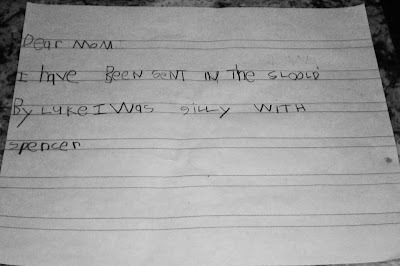 Dear Mom
I have BEEN SENT IN The SLOOLD
By LUKE I WAS SiLLY WITH
Spencer